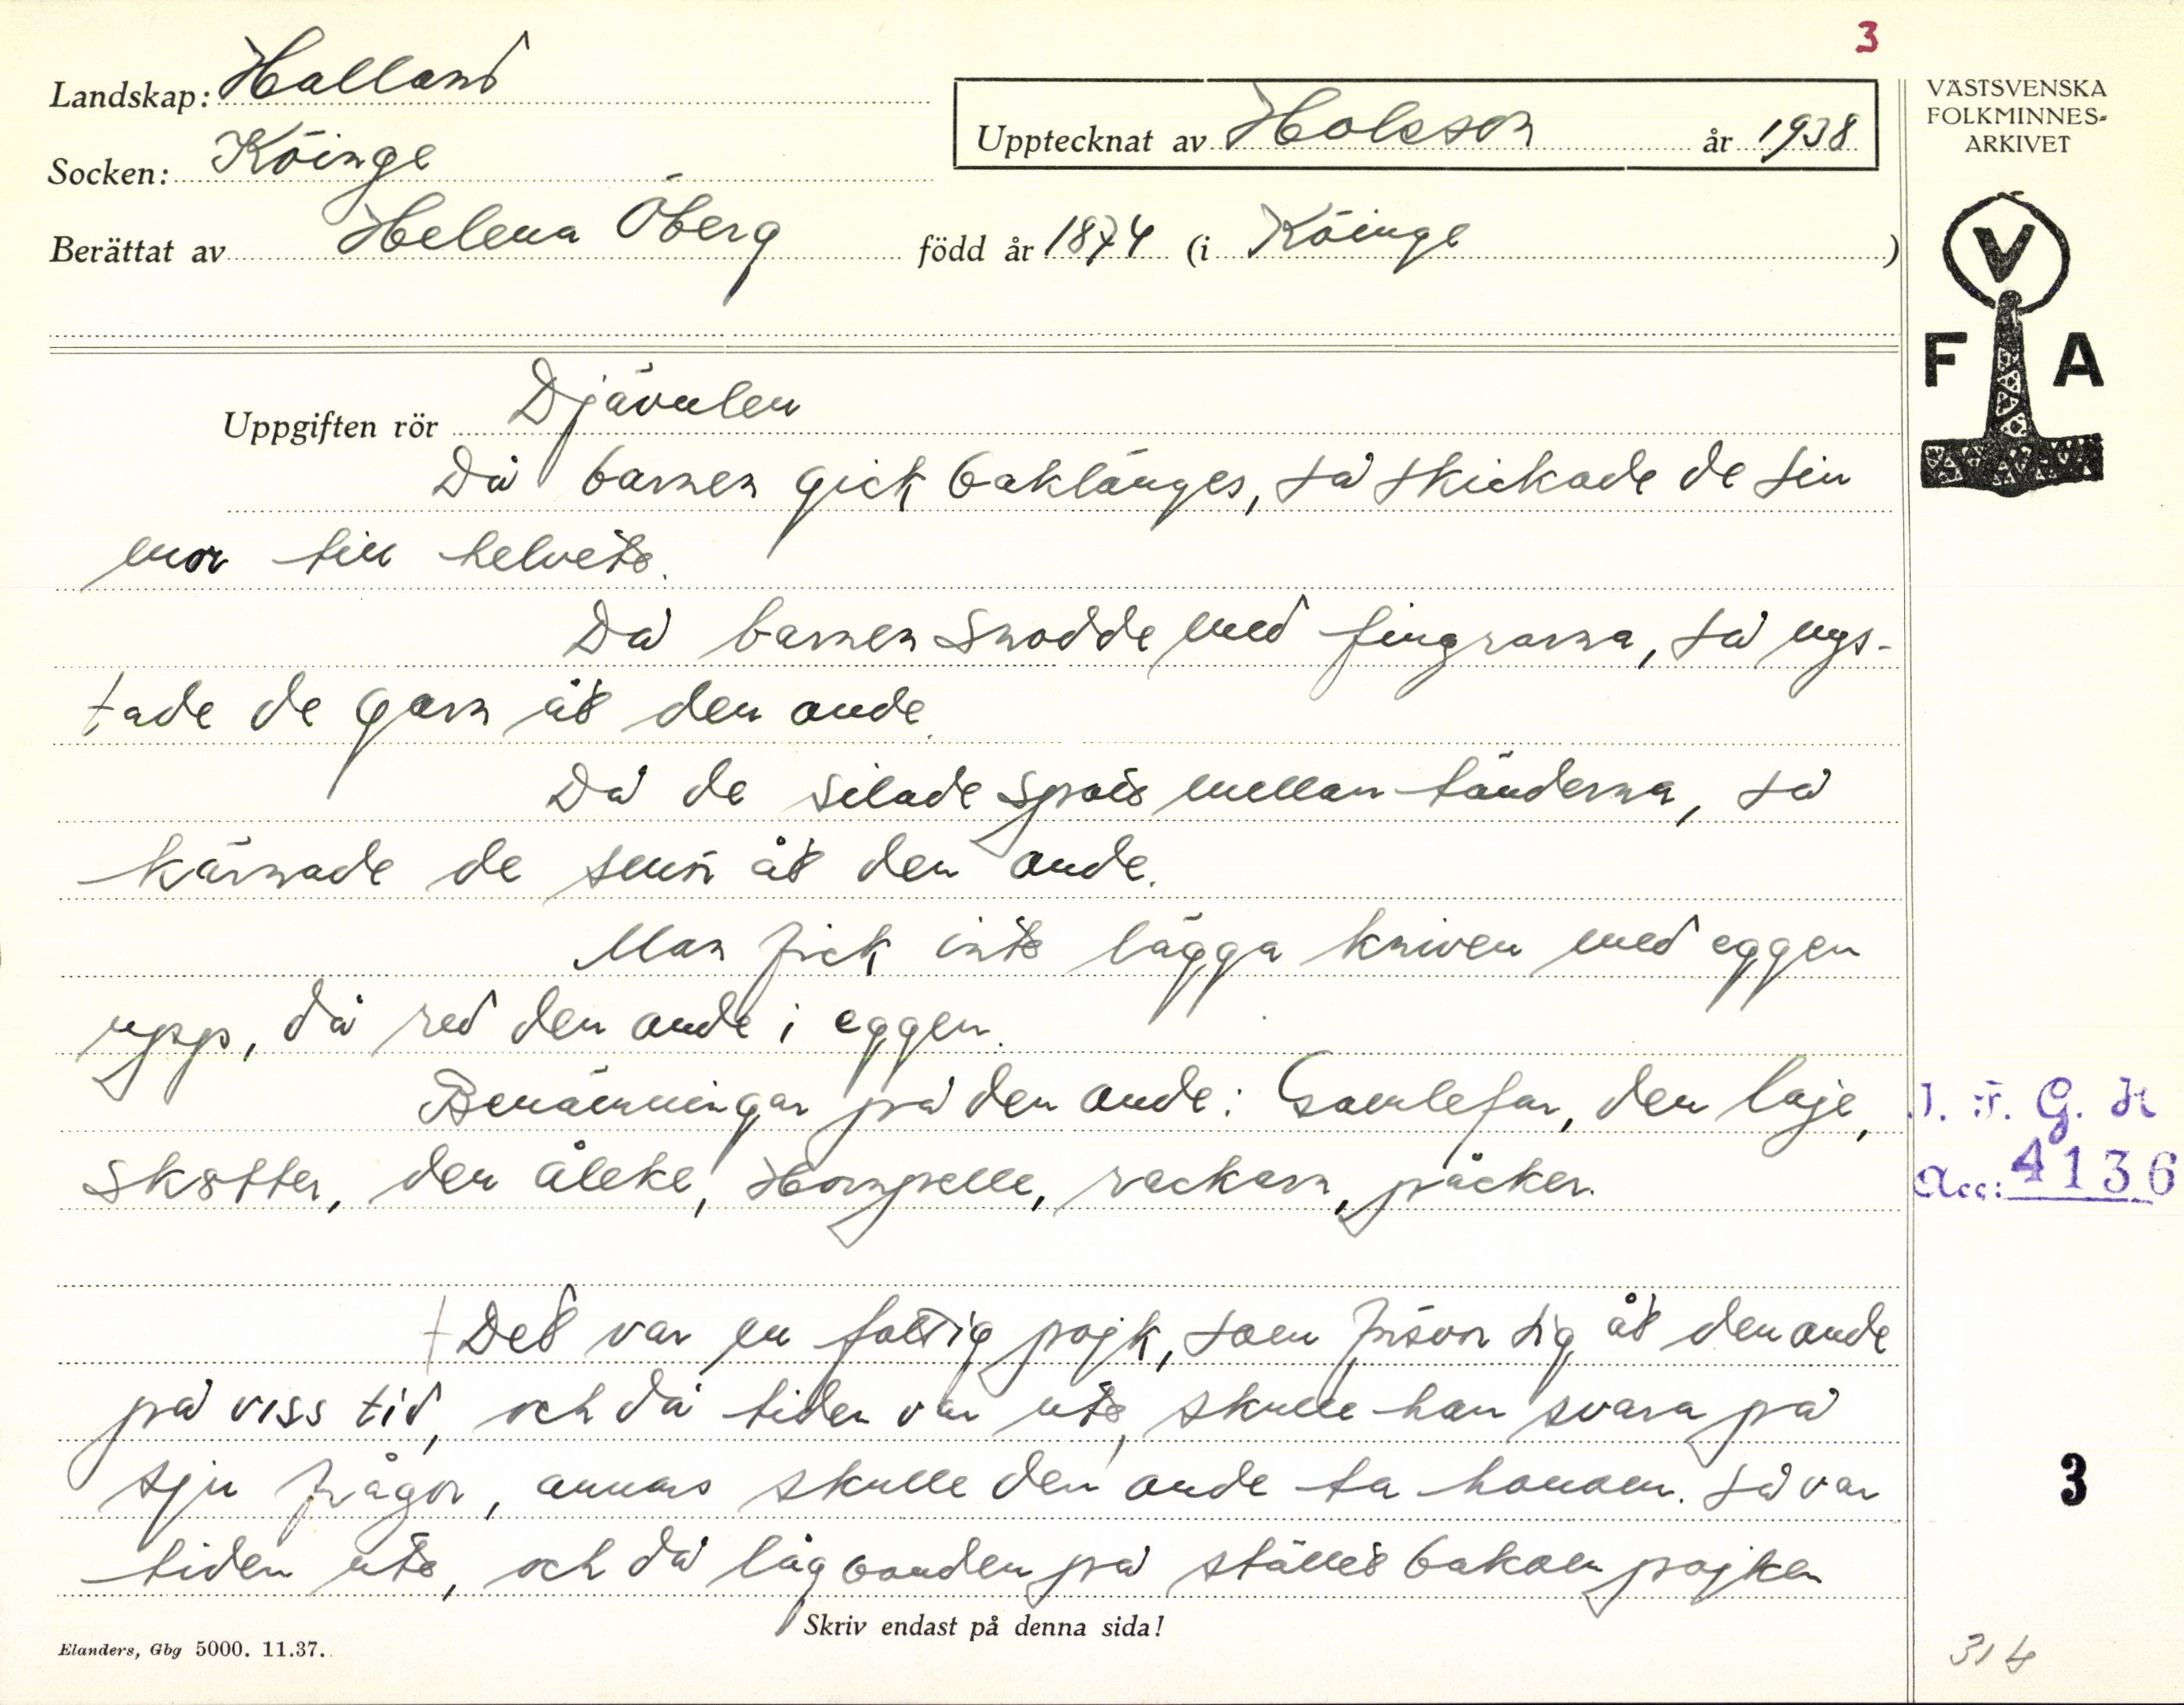 3
Landskap: Halland
Socken: Köinge
Upptecknat av Holsson år 1938
Berättat av Helena Öberg född år 1874 (i Köinge)
VÄSTSVENSKA
FOLKMINNES-
ARKIVET
V
F A
Uppgiften rör Djävulen
Då barnen gick baklänges, så skickade de sin
mor till helvete.
Då barnen snodde med fingrarna, så nys-
tade de garn åt den onde.
Då de silade spott mellan tänderna, så
kärnade de smör åt den onde.
Man fick inte lägga kniven med eggen
upp, då red den onde i eggen.
Benämningar på den onde: Gamlefar, den laje,
skötter, den åleke, Hornpelle, rackarn, päcken.
Det var en fattig pojk, som försvor sig åt den onde
på viss tid, och då tiden var ute, skulle han svara på
sju frågor, annars skulle den onde ta honom. Så var
tiden ute, och då låg onden på stället bakom pojken
Skriv endast på denna sida!
Elanders, Gbg 5000. 11.37.
I. F. G. H
Acc: 4136
3
314